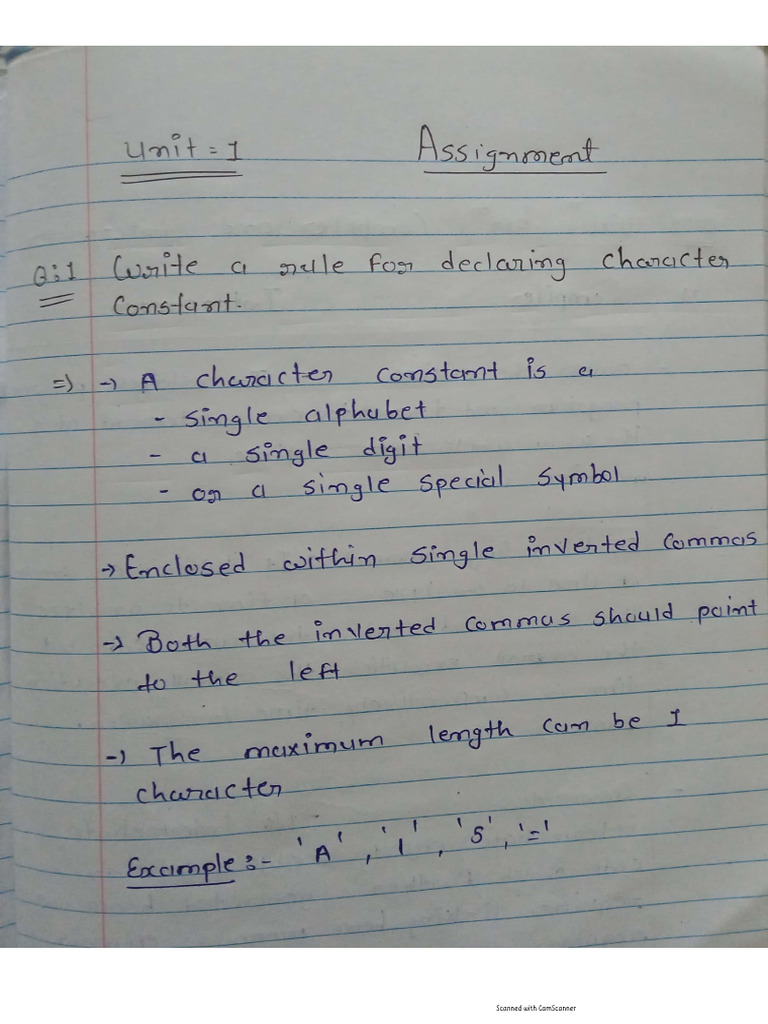 Unit = 1 Assignment
Q:1 Write a rule for declaring character
constant.
=) → A character constant is a
- single alphabet
- a single digit
- or a single special symbol
→ Enclosed within single inverted commas
→ Both the inverted commas should point
to the left
→ The maximum length can be 1
character
Example :- 'A' , 'I' , '5' , '='
Scanned with CamScanner